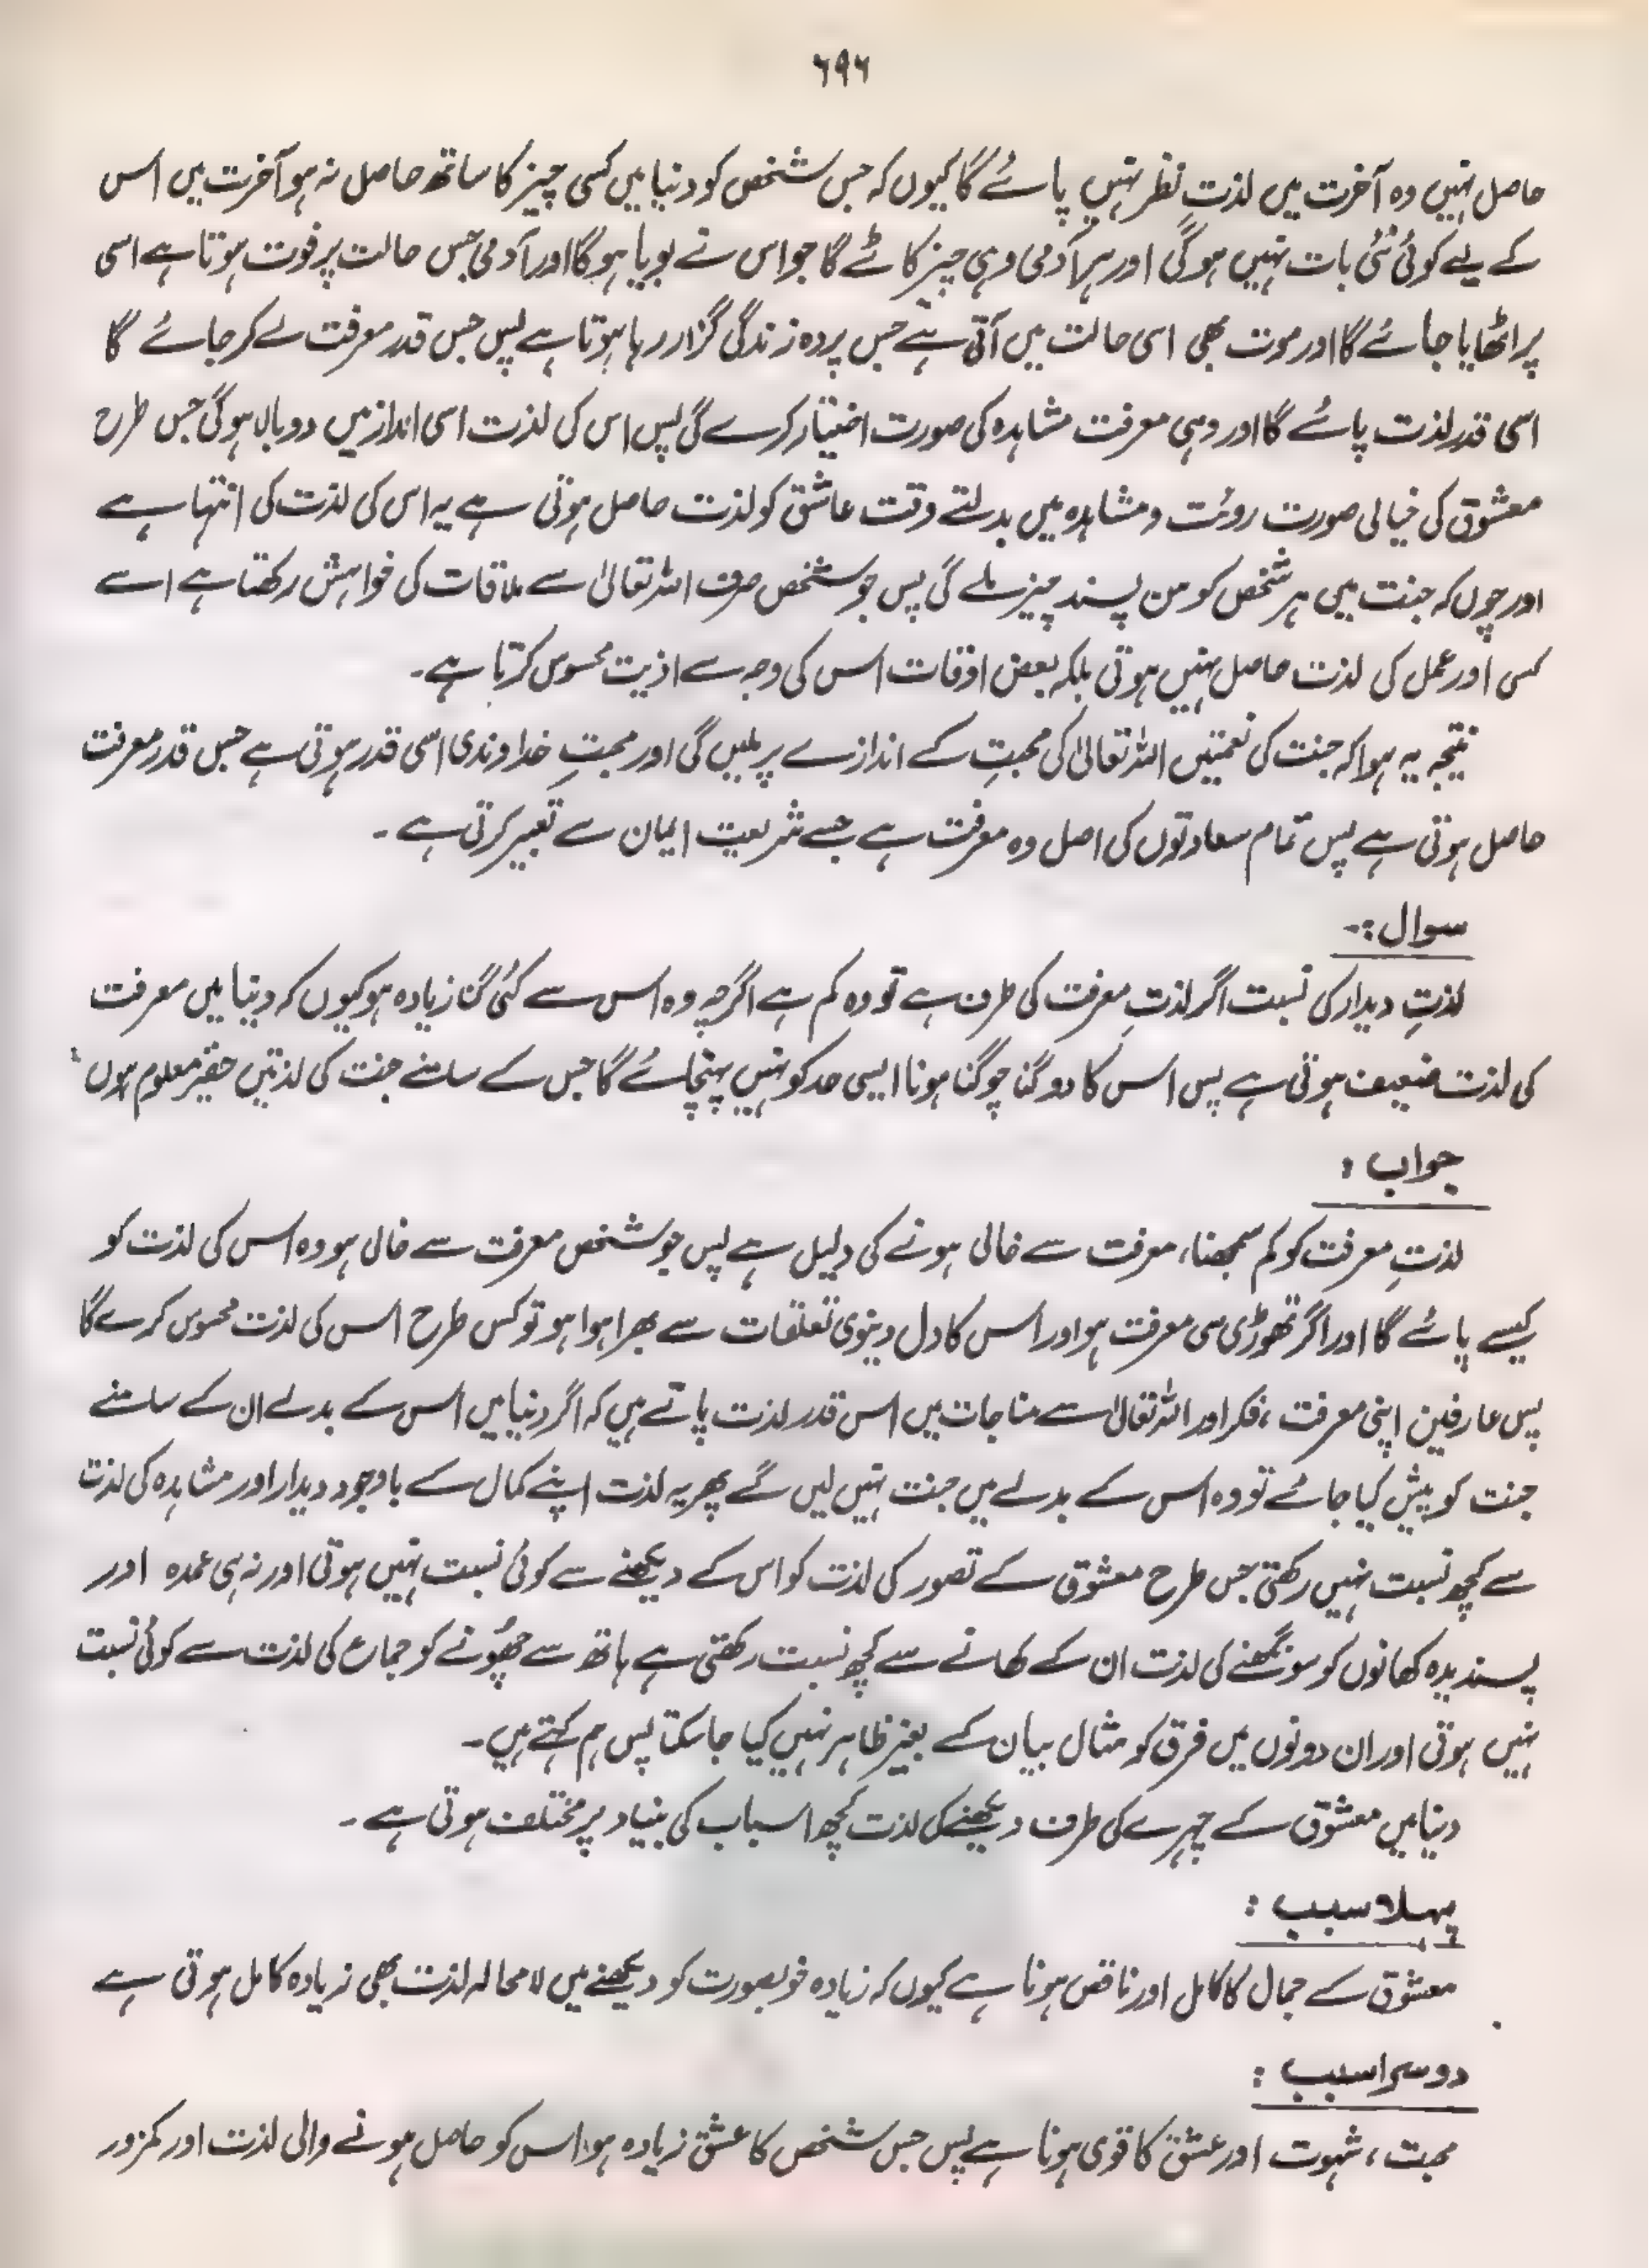 ۶۹۶
حاصل نہیں وہ آخرت میں لذتِ نظر نہیں پائے گا کیوں کہ جس شخص کو دنیا میں کسی چیز کا ساتھ حاصل نہ ہو آخرت میں اس
کے لیے کوئی نئی بات نہیں ہوگی اور ہر آدمی وہی چیز کاٹے گا جو اس نے بویا ہوگا اور آدمی جس حالت پر فوت ہوتا ہے اسی
پر اٹھایا جائے گا اور موت بھی اسی حالت میں آتی ہے جس پر وہ زندگی گزار رہا ہوتا ہے پس جس قدر معرفت لے کر جائے گا
اسی قدر لذت پائے گا اور وہی معرفت مشاہدہ کی صورت اختیار کرے گی پس اس کی لذت اسی انداز میں دوبالا ہوگی جس طرح
معشوق کی خیالی صورت روئت و مشاہدہ میں بدلتے وقت عاشق کو لذت حاصل ہوتی ہے یہ اس کی لذت کی انتہا ہے
اور چوں کہ جنت میں ہر شخص کو من پسند چیز ملے گی پس جو شخص صرف اللہ تعالیٰ سے ملاقات کی خواہش رکھتا ہے اسے
کسی اور عمل کی لذت حاصل نہیں ہوتی بلکہ بعض اوقات اس کی وجہ سے اذیت محسوس کرتا ہے۔
نتیجہ یہ ہوا کہ جنت کی نعمتیں اللہ تعالیٰ کی محبتِ کے اندازے پر ملیں گی اور محبتِ خداوندی اسی قدر ہوتی ہے جس قدر معرفت
حاصل ہوتی ہے پس تمام سعادتوں کی اصل وہ معرفت ہے جسے شریعت ایمان سے تعبیر کرتی ہے ۔
سوال :-
لذتِ دیدار کی نسبت اگر لذتِ معرفت کی طرف ہے تو وہ کم ہے اگرچہ وہ اس سے کئی گنا زیادہ ہو کیوں کہ دنیا میں معرفت
کی لذت ضعیف ہوتی ہے پس اس کا دوگنا چوگنا ہونا ایسی حد کو نہیں پہنچائے گا جس کے سامنے جنت کی لذتیں حقیر معلوم ہوں
جواب :
لذتِ معرفت کو کم سمجھنا، معرفت سے خالی ہونے کی دلیل ہے پس جو شخص معرفت سے خالی ہو وہ اس کی لذت کو
کیسے پائے گا اور اگر تھوڑی سی معرفت ہو اور اس کا دل دینوی تعلقات سے بھرا ہوا ہو تو کس طرح اس کی لذت محسوس کرے گا
پس عارفین اپنی معرفت ، فکر اور اللہ تعالیٰ سے مناجات میں اس قدر لذت پاتے ہیں کہ اگر دنیا میں اس کے بدلے ان کے سامنے
جنت کو پیش کیا جائے تو وہ اس کے بدلے میں جنت نہیں لیں گے پھر یہ لذت اپنے کمال کے باوجود دیدار اور مشاہدہ کی لذت
سے کچھ نسبت نہیں رکھتی جس طرح معشوق کے تصور کی لذت کو اس کے دیکھنے سے کوئی نسبت نہیں ہوتی اور نہ ہی عمدہ اور
پسندیدہ کھانوں کو سونگھنے کی لذت ان کے کھانے سے کچھ نسبت رکھتی ہے ہاتھ سے چھُونے کو جماع کی لذت سے کوئی نسبت
نہیں ہوتی اور ان دونوں میں فرق کو مثال بیان کے بغیر ظاہر نہیں کیا جاسکتا پس ہم کہتے ہیں۔
دنیا میں معشوق کے چہرے کی طرف دیکھنے کی لذت کچھ اسباب کی بنیاد پر مختلف ہوتی ہے ۔
پہلا سبب :
معشوق کے جمال کا کامل اور ناقص ہونا ہے کیوں کہ زیادہ خوبصورت کو دیکھنے میں لا محالہ لذت بھی زیادہ کامل ہوتی ہے
دوسرا سبب :
محبت ، شہوت اور عشق کا قوی ہونا ہے پس جس شخص کا عشق زیادہ ہو اس کو حاصل ہونے والی لذت اور کمزور